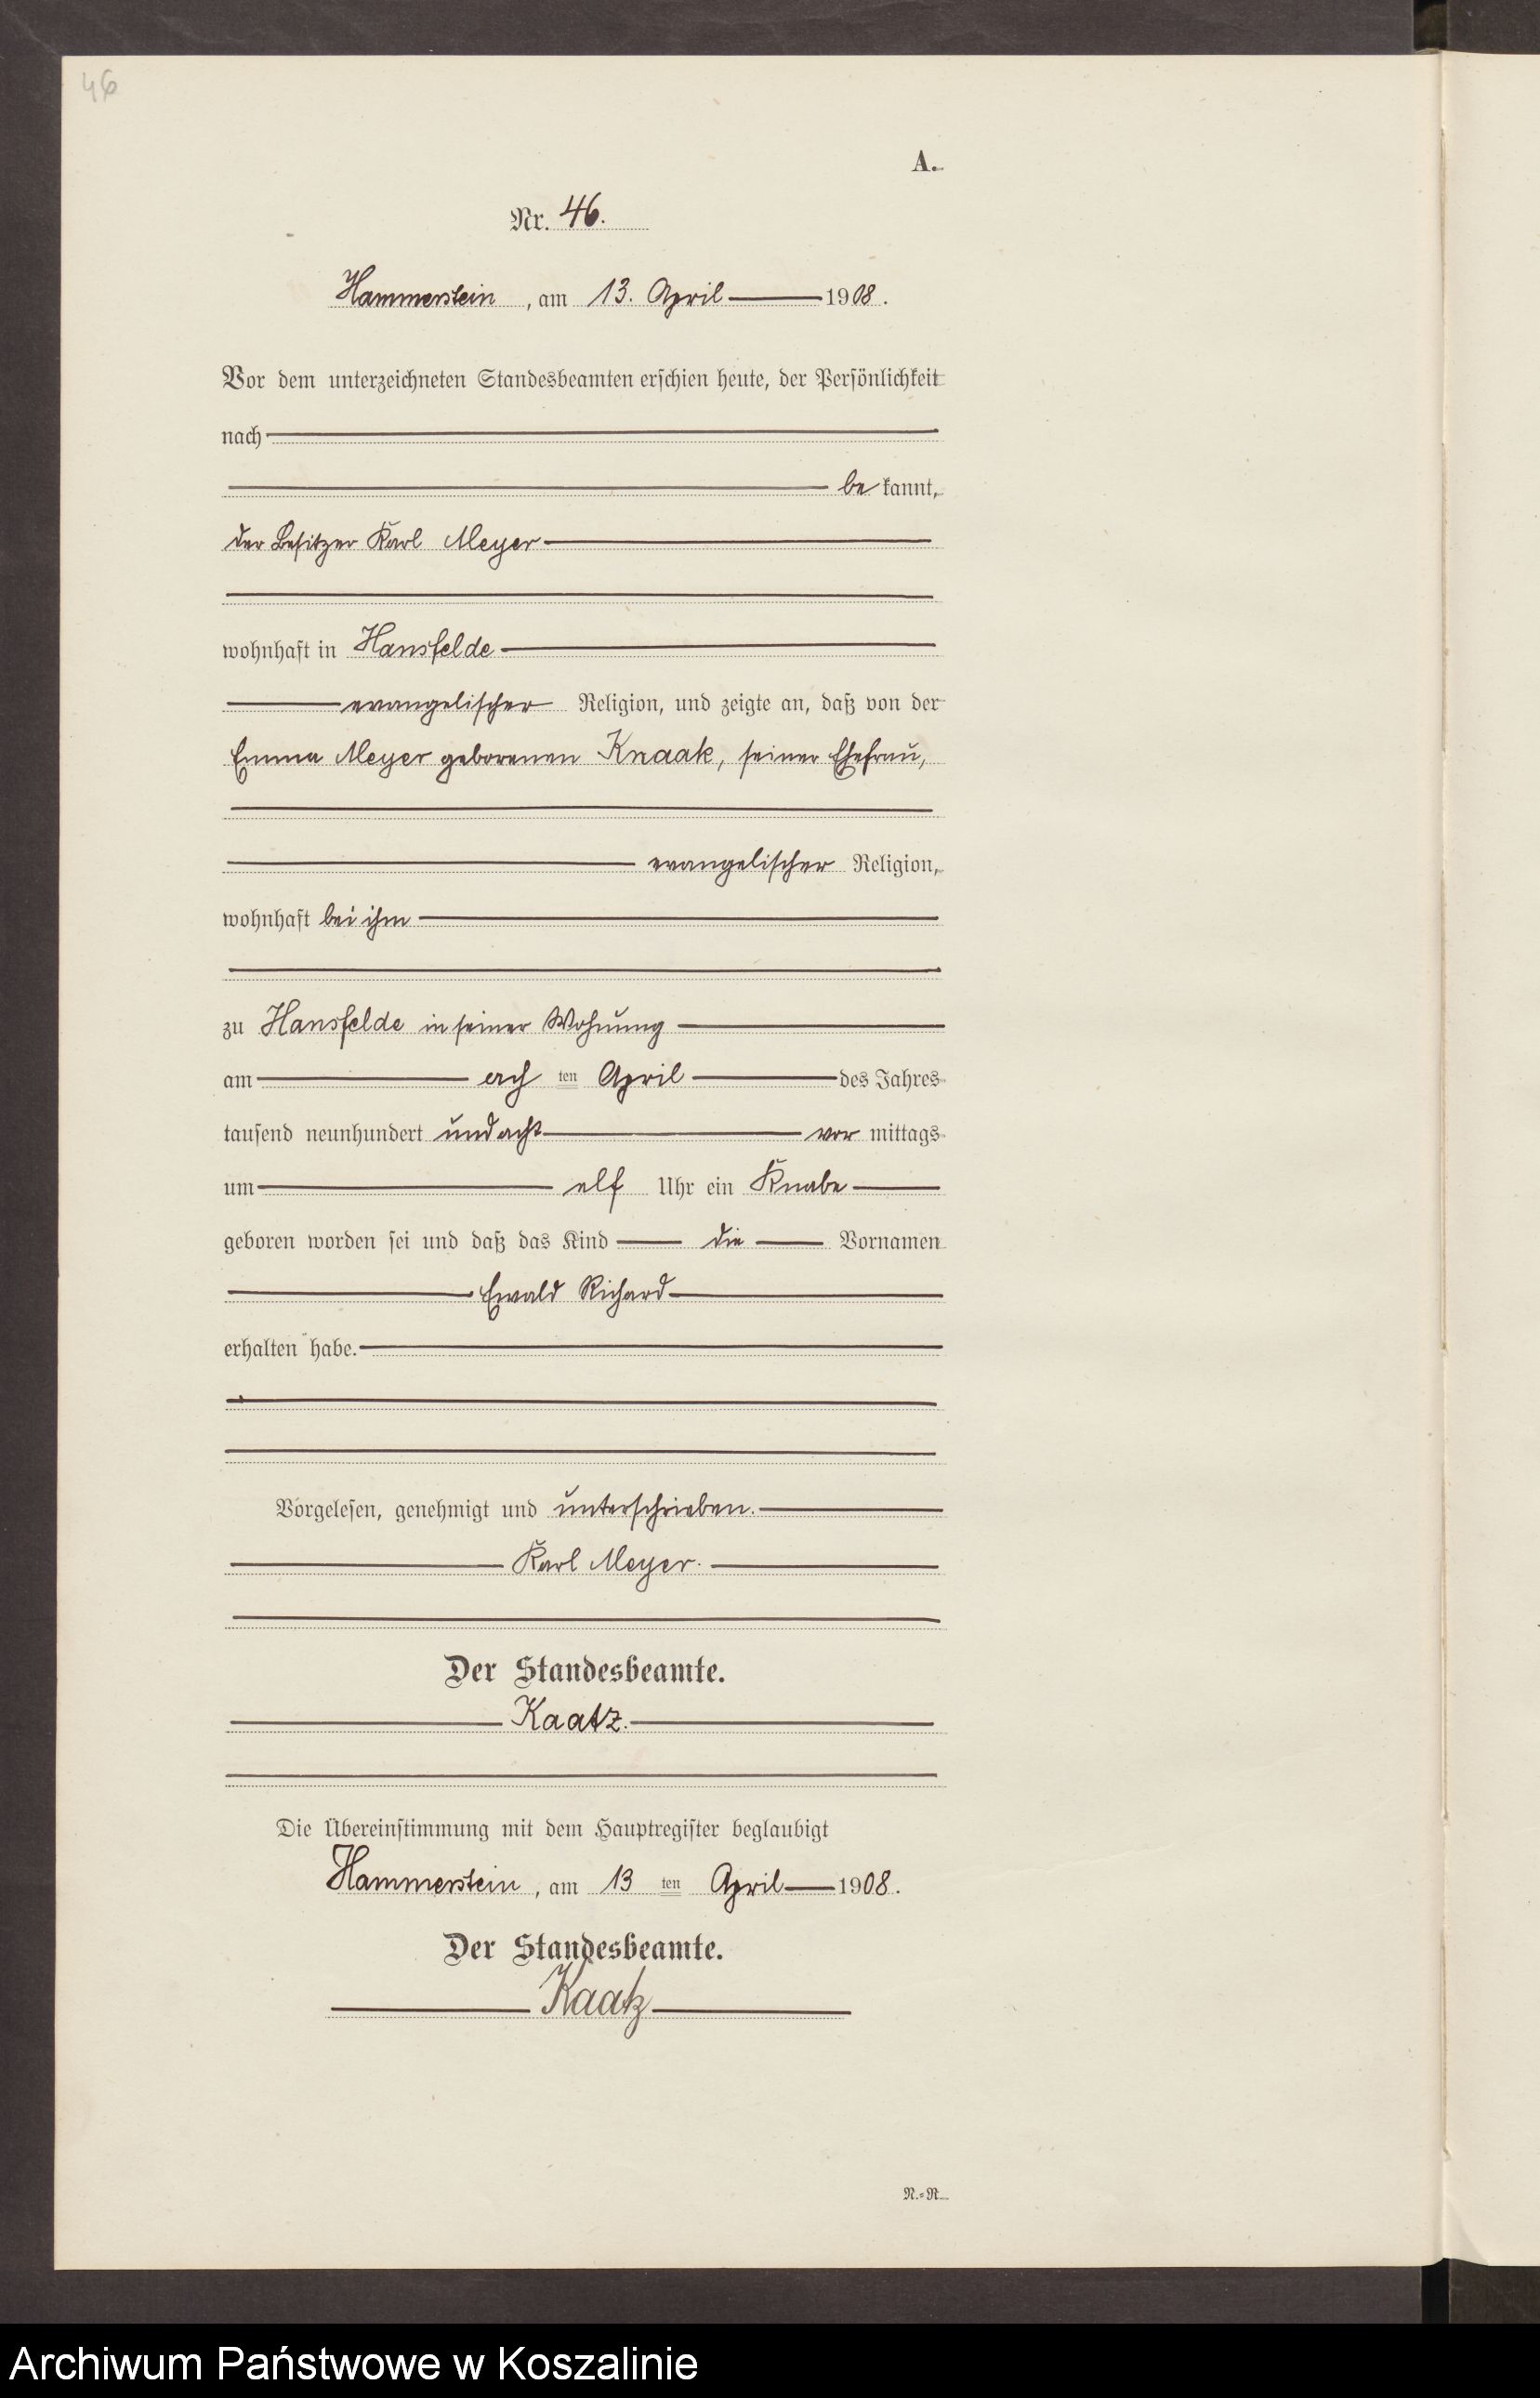 46
A.
Nr. 46.
Hammerstein, am 13. April 1908.
Vor dem unterzeichneten Standesbeamten erschien heute, der Persönlichkeit
nach
be kannt,
der Besitzer Karl Meyer
wohnhaft in Hansfelde
evangelischer Religion, und zeigte an, daß von der
Emma Meyer geborenen Knaak, seiner Ehefrau,
evangelischer Religion,
wohnhaft bei ihm
zu Hansfelde in seiner Wohnung
am ach ten April des Jahres
tausend neunhundert und acht vor mittags
um elf Uhr ein Knabe
geboren worden sei und daß das Kind die Vornamen
Ewald Richard
erhalten habe.
Vorgelesen, genehmigt und unterschrieben.
Karl Meyer.
Der Standesbeamte.
Kaatz.
Die Übereinstimmung mit dem Hauptregister beglaubigt
Hammerstein, am 13 ten April 1908.
Der Standesbeamte.
Kaatz
N.=R.
Archiwum Państwowe w Koszalinie